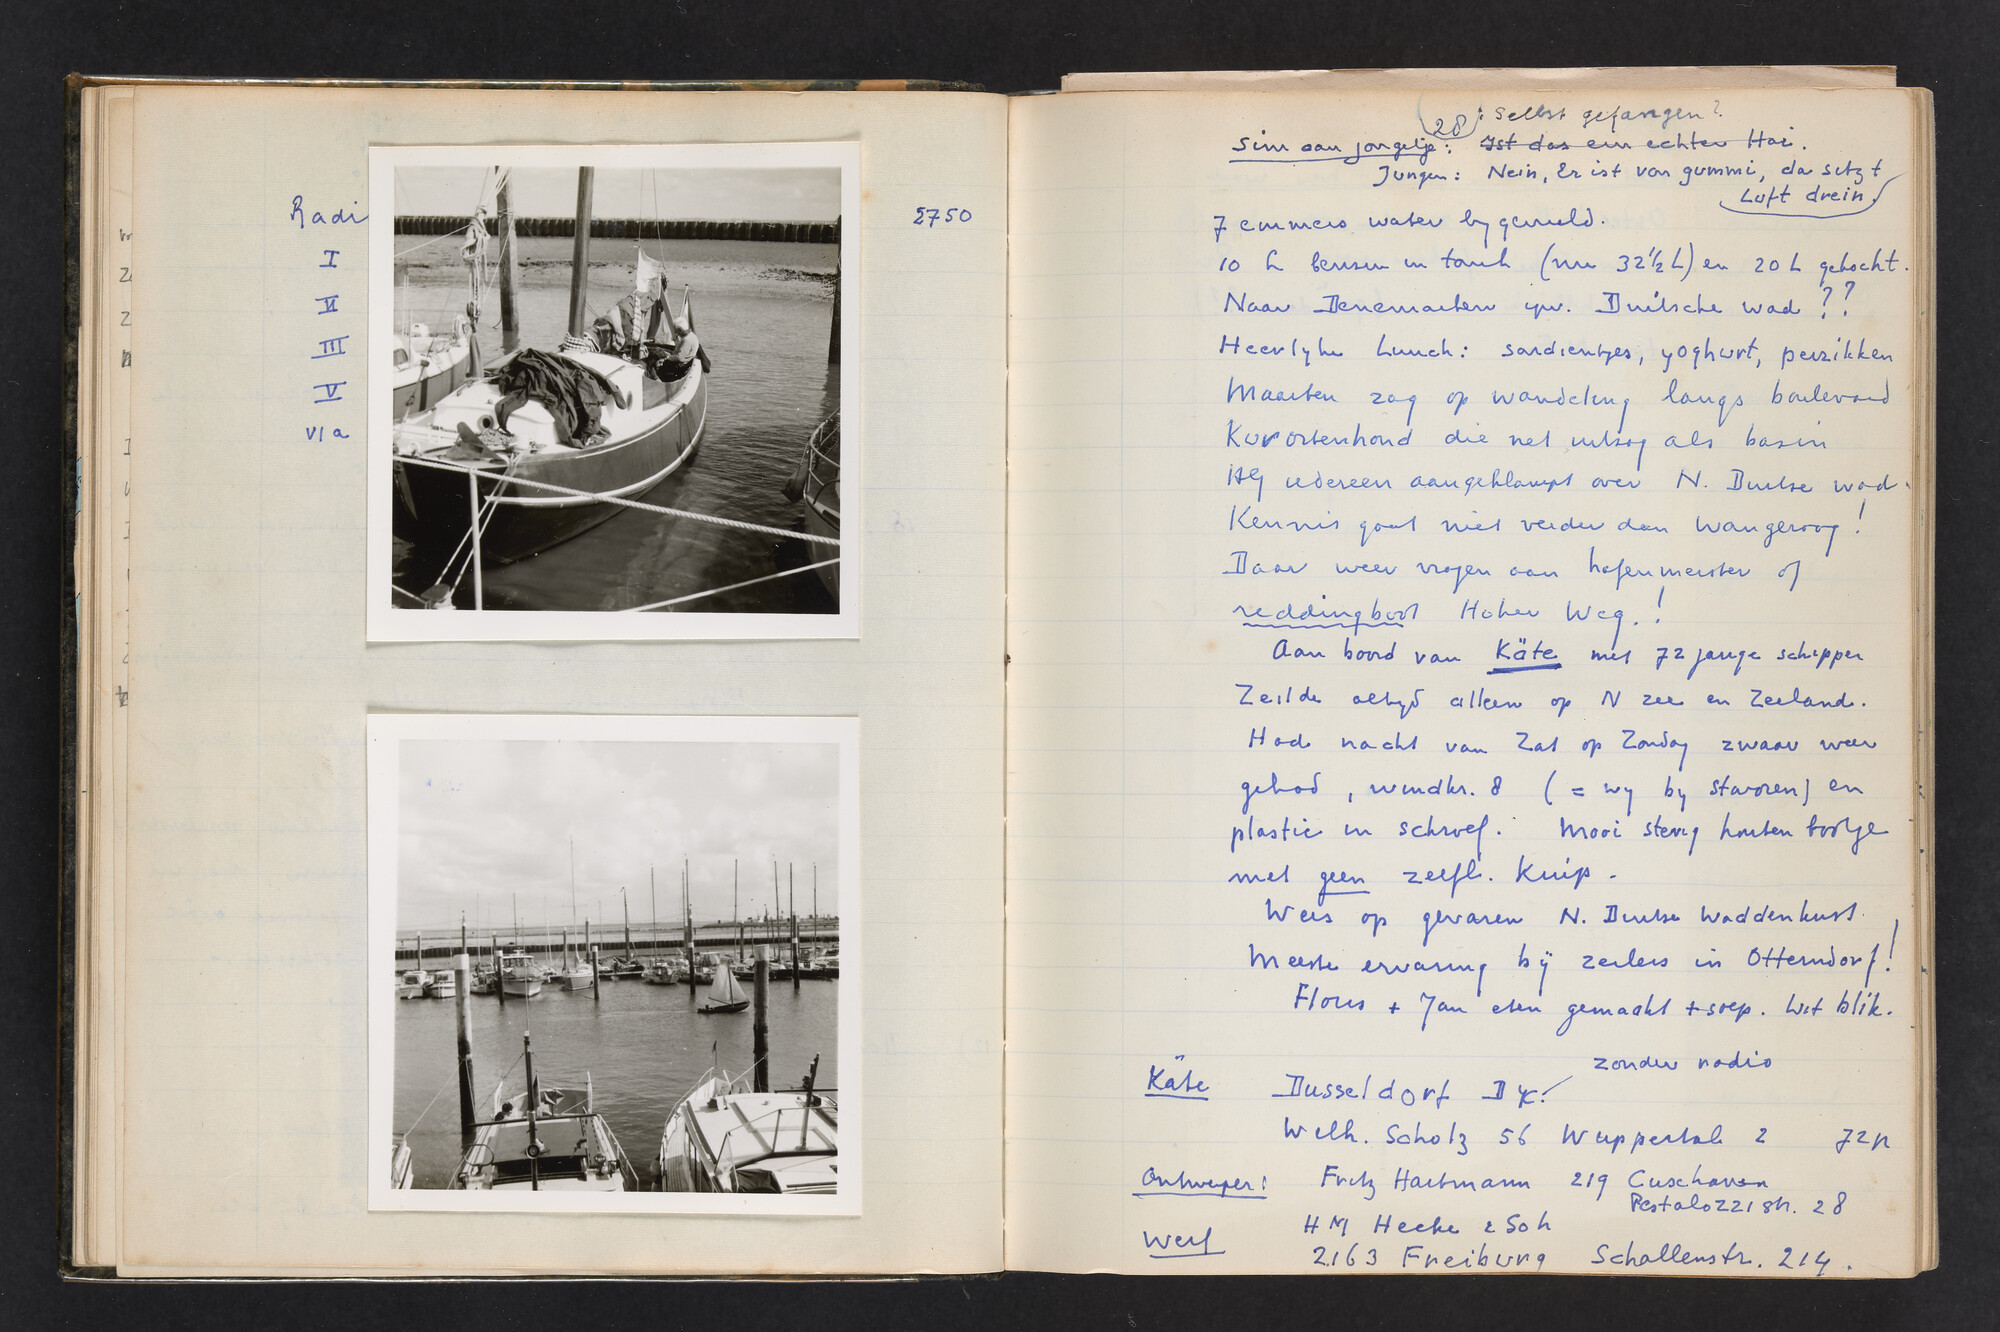 Radi
2750
I
II
III
V
VIa
28
: Selbst gefangen?
Sim aan jongetje: Ist das ein echter Hai.
Jungen: Nein, Er ist von gummi, da sitzt
Luft drein.
7 emmers water bygevuld.
10 L benzin in tank (nu 32½ L) en 20 L gekocht.
Naar Denemarken ipv. Duitsche wad ??
Heerlyke Lunch: sardientjes, yoghurt, perzikken
Maarten zag op wandeling langs boulevard
Kurortenhond die net uitzag als bazin
Hy iedereen aangeklampt over N. Duitse wad.
Kennis gaat niet verder dan Wangeroog!
Daar weer vragen aan hafenmeister of
reddingboot Hohe Weg.!
Aan boord van Käte met 72 jarige schipper
Zeilde altyd alleen op N zee en Zeeland.
Had nacht van Zat op Zondag zwaar weer
gehad, windkr. 8 (= wy by Stavoren) en
plastic in schroef. Mooi stevig houten bootje
met geen zelfl. Kuip.
Wees op gevaren N. Duitse Waddenkust.
Meeste ervaring bij zeilers in Otterndorf!
Floris + Jan eten gemaakt + soep. Uit blik.
zonder radio
Käte Dusseldorf DYC!
Wilh. Scholz 56 Wuppertal 2 72 jr
Ontwerper: Fritz Hartmann 219 Cuxhaven
Pestalozzistr. 28
HM Hecke & Soh
Werf
2163 Freiburg Schallenstr. 214.